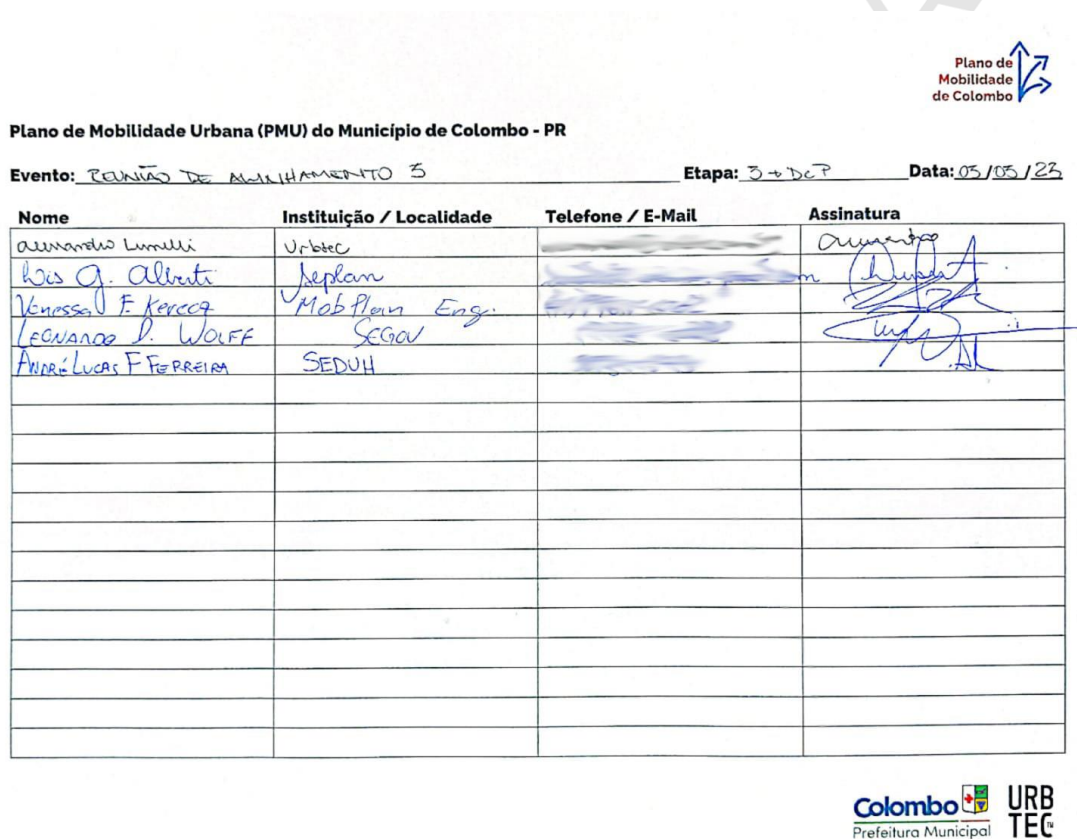 Plano de
Mobilidade
de Colombo
Plano de Mobilidade Urbana (PMU) do Município de Colombo - PR
Evento: REUNIÃO DE ALINHAMENTO 3 Etapa: 3 + DcP Data: 03/05/23
Nome Instituição / Localidade Telefone / E-Mail Assinatura
Urbtec
G. Alberti Seplan
Vanessa F. MobPlan Eng.
LEONARDO D. WOLFF SEGOV
ANDRÉ LUCAS F FERREIRA SEDUH
Colombo
Prefeitura Municipal
URB
TEC™